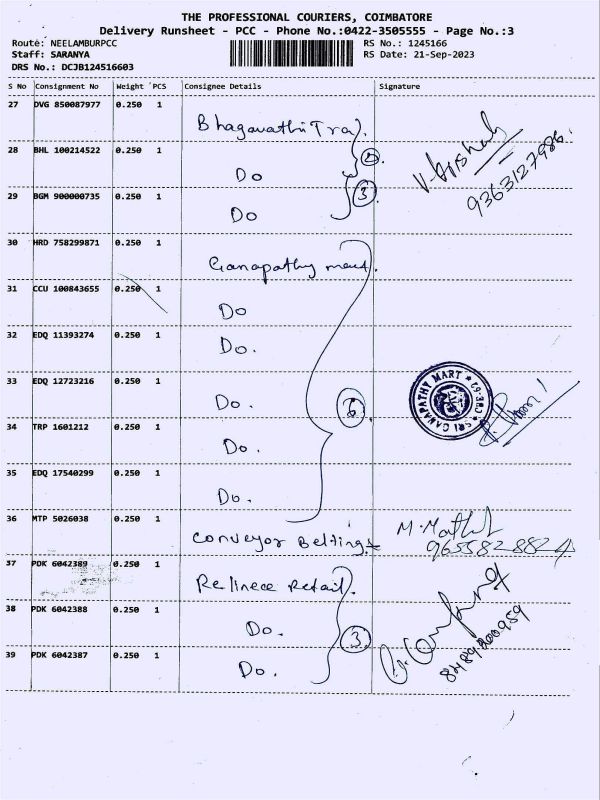 THE PROFESSIONAL COURIERS, COIMBATORE
Delivery Runsheet - PCC - Phone No.:0422-3505555 - Page No.:3
Route: NEELAMBURPCC RS No.: 1245166
Staff: SARANYA RS Date: 21-Sep-2023
DRS No.: DCJB124516603
S No Consignment No Weight PCS Consignee Details Signature
27 DVG 850087977 0.250 1
Bhagavathi Tra).
28 BHL 100214522 0.250 1
Do 2
29 BGM 900000735 0.250 1
Do 3
9363127986
30 HRD 758299871 0.250 1
Ganapathy mart.
31 CCU 100843655 0.250 1
Do
32 EDQ 11393274 0.250 1
Do.
33 EDQ 12723216 0.250 1
Do. 6
SRI GANAPATHY MART CBE-62
34 TRP 1601212 0.250 1
Do.
35 EDQ 17540299 0.250 1
Do.
36 MTP 5026038 0.250 1
Conveyor Beltings M. Mathi
9655828824
37 PDK 6042389 0.250 1
Relinece Retail.
38 PDK 6042388 0.250 1
Do. 3
8489200959
39 PDK 6042387 0.250 1
Do.